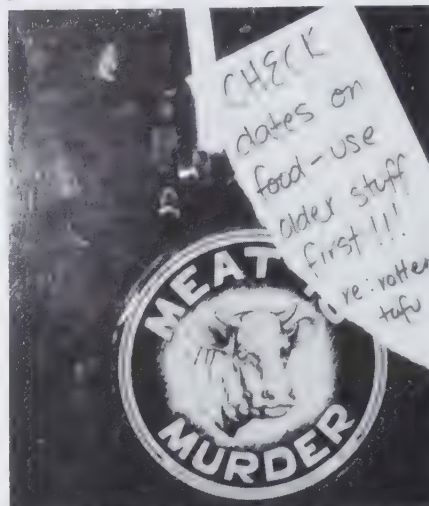 CHECK
dates on
food - use
older stuff
first !!!
re: rotten
tofu
MEAT
MURDER